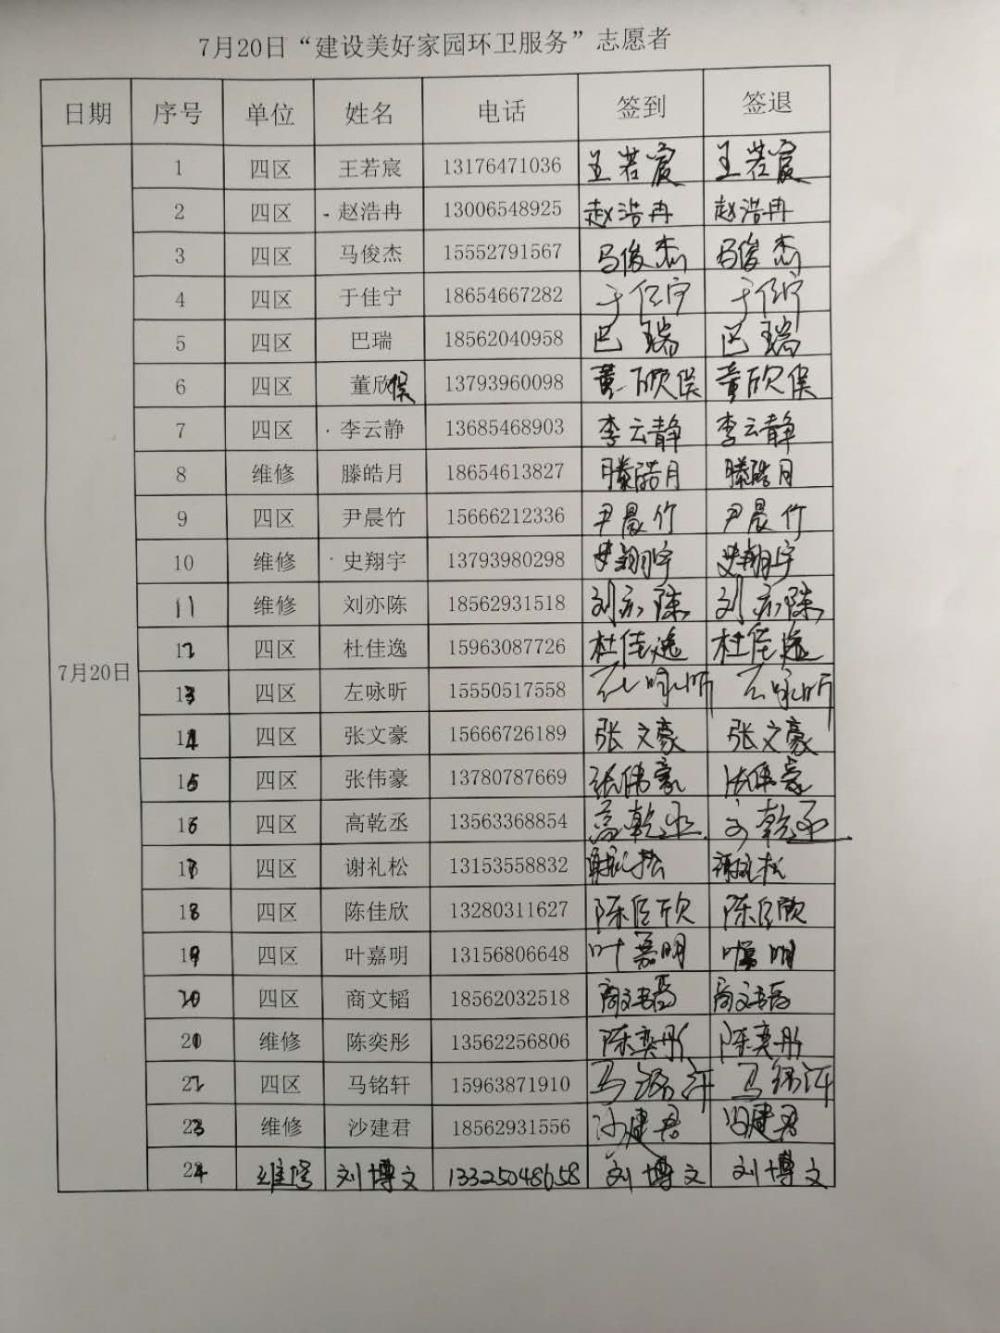 7月20日“建设美好家园环卫服务”志愿者
日期 序号 单位 姓名 电话 签到 签退
7月20日
1 四区 王若宸 13176471036 王若宸 王若宸
2 四区 赵浩冉 13006548925 赵浩冉 赵浩冉
3 四区 马俊杰 15552791567 马俊杰 马俊杰
4 四区 于佳宁 18654667282 于佳宁 于佳宁
5 四区 巴瑞 18562040958 巴瑞 巴瑞
6 四区 董欣俣 13793960098 董欣俣 董欣俣
7 四区 李云静 13685468903 李云静 李云静
8 维修 滕皓月 18654613827 滕皓月 滕皓月
9 四区 尹晨竹 15666212336 尹晨竹 尹晨竹
10 维修 史翔宇 13793980298 史翔宇 史翔宇
11 维修 刘亦陈 18562931518 刘亦陈 刘亦陈
12 四区 杜佳逸 15963087726 杜佳逸 杜佳逸
13 四区 左咏昕 15550517558 左咏昕 左咏昕
14 四区 张文豪 15666726189 张文豪 张文豪
15 四区 张伟豪 13780787669 张伟豪 张伟豪
16 四区 高乾丞 13563368854 高乾丞 高乾丞
17 四区 谢礼松 13153558832 谢礼松 谢礼松
18 四区 陈佳欣 13280311627 陈佳欣 陈佳欣
19 四区 叶嘉明 13156806648 叶嘉明 叶嘉明
20 四区 商文韬 18562032518 商文韬 商文韬
21 维修 陈奕彤 13562256806 陈奕彤 陈奕彤
22 四区 马铭轩 15963871910 马铭轩 马铭轩
23 维修 沙建君 18562931556 沙建君 沙建君
24 维修 刘博文 13325048658 刘博文 刘博文